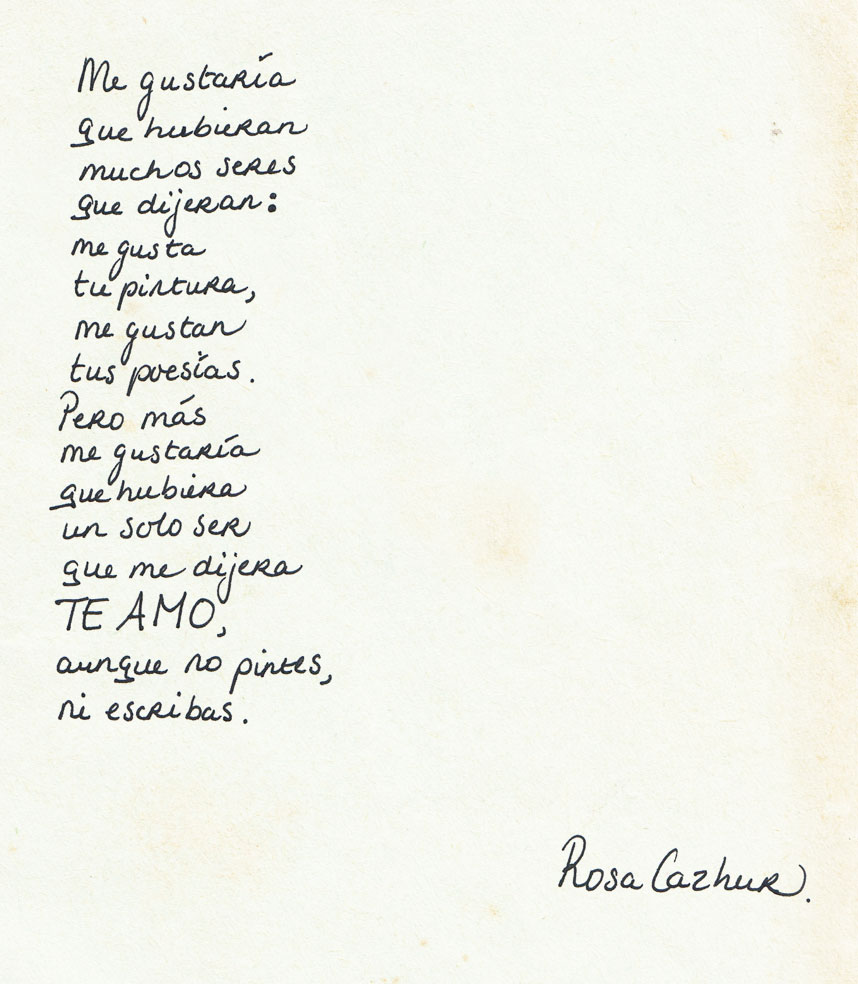 Me gustaría
que hubieran
muchos seres
que dijeran:
me gusta
tu pintura,
me gustan
tus poesías.
Pero más
me gustaría
que hubiera
un solo ser
que me dijera
TE AMO,
aunque no pintes,
ni escribas.
Rosa Cazhur.